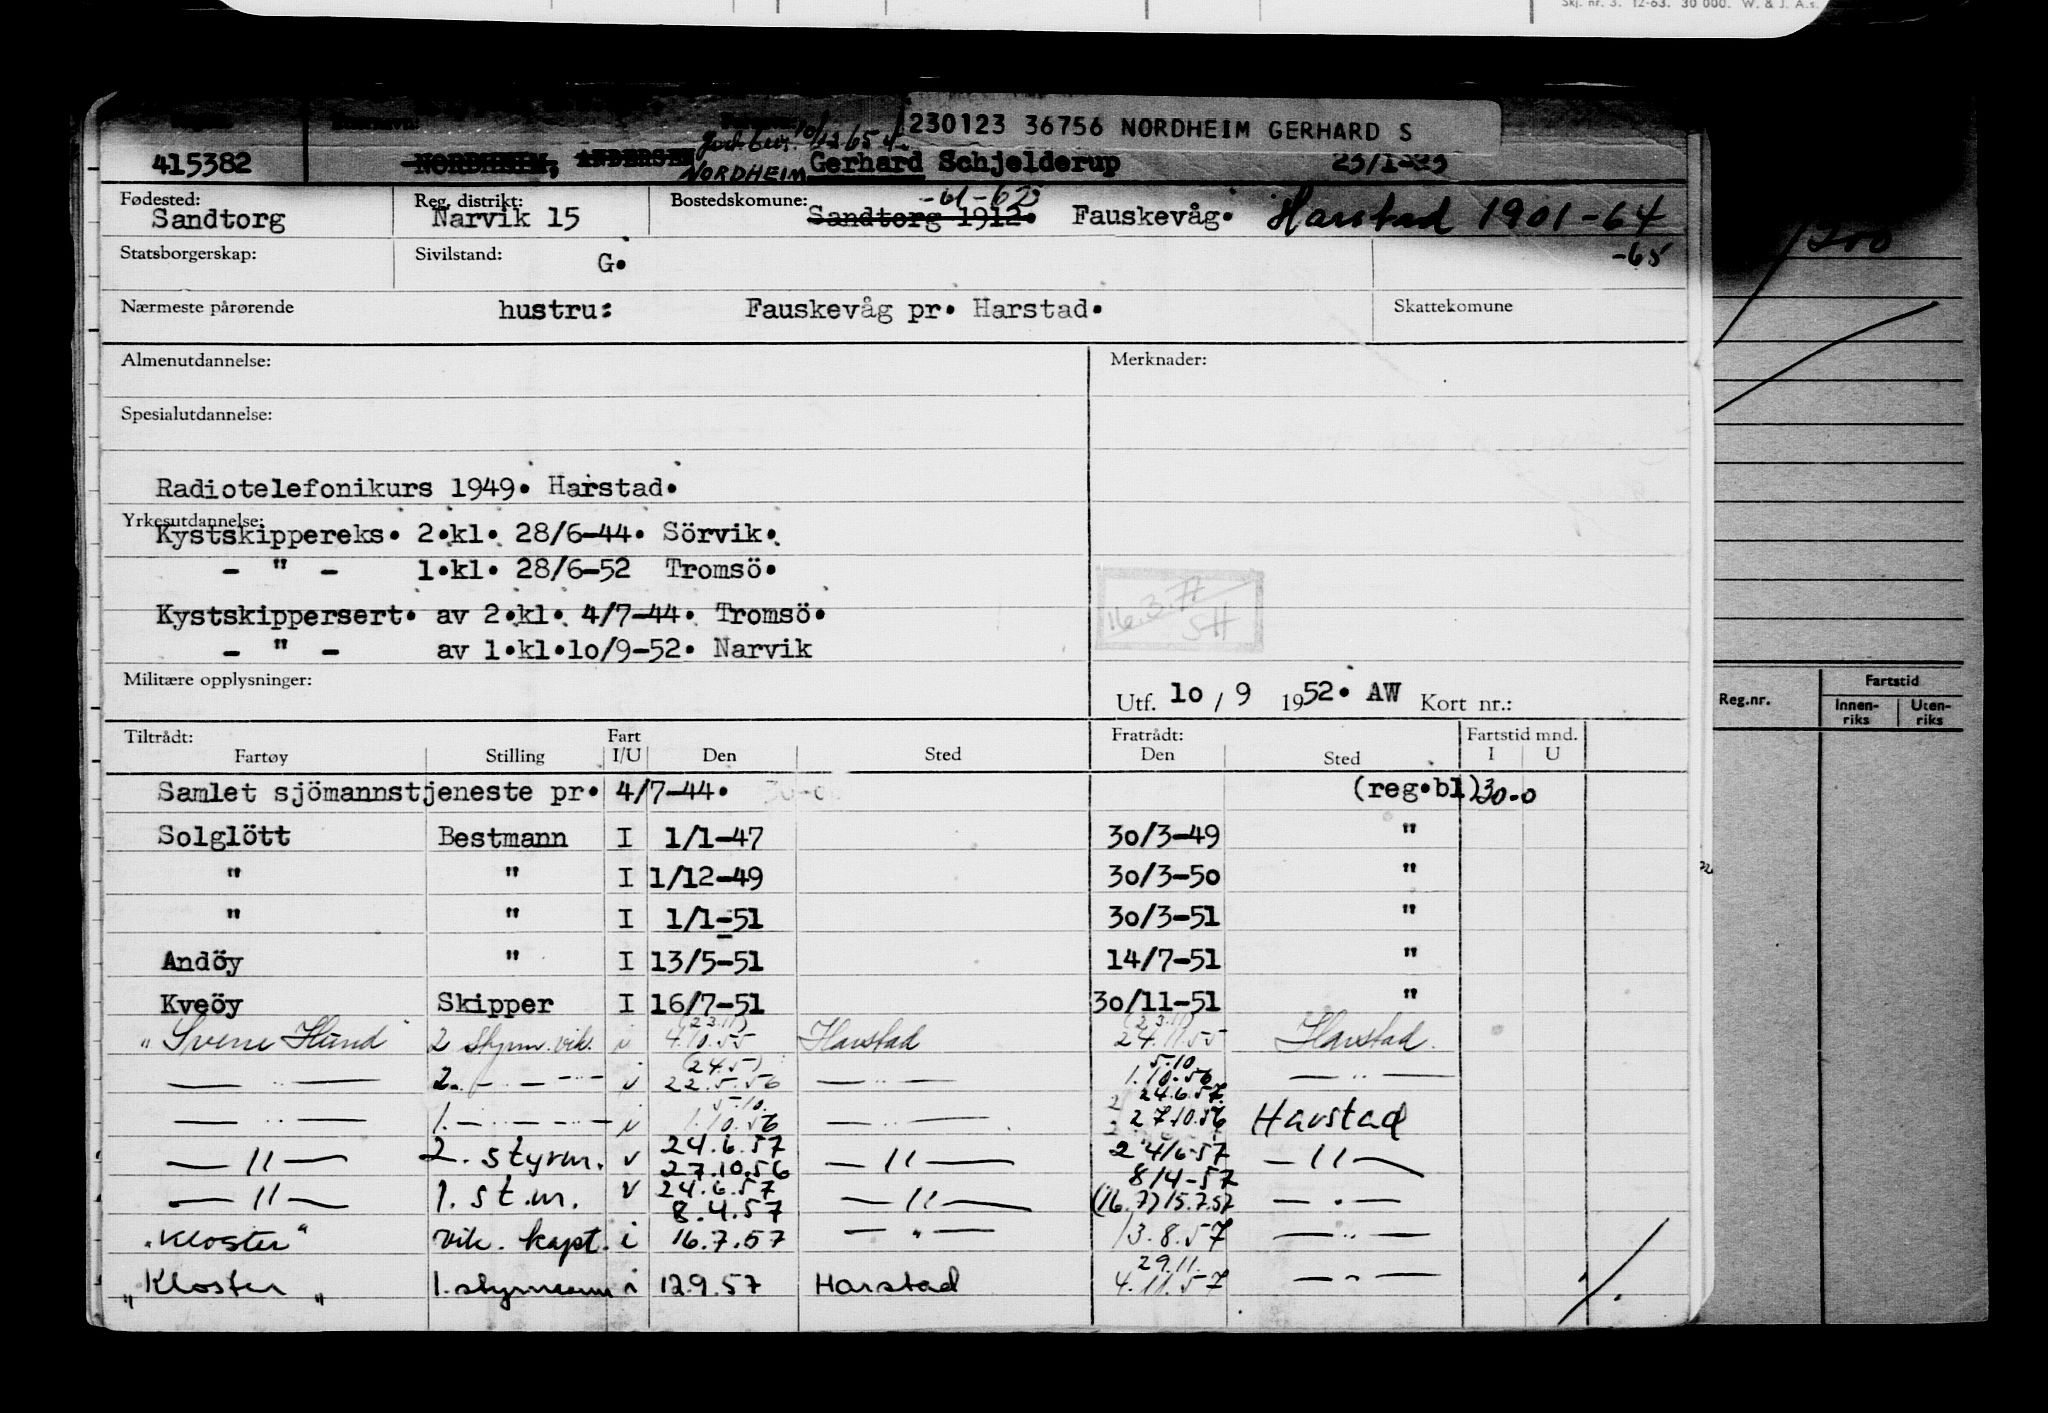 Skj. nr. 3. 12-63. 30 000. W. & J. A.s.
230123 36756 NORDHEIM GERHARD S
415382 NORDHEIM, ANDERSEN NORDHEIM Gerhard Schjelderup 23/1-23
Fødested: Reg. distrikt: Bostedskomune: -61-62
Sandtorg Narvik 15 Sandtorg 1912. Fauskevåg. Harstad 1901-64
-65
Statsborgerskap: Sivilstand: G.
Nærmeste pårørende hustru: Fauskevåg pr. Harstad. Skattekomune
Almenutdannelse: Merknader:
Spesialutdannelse:
Radiotelefonikurs 1949. Harstad.
Yrkesutdannelse:
Kystskippereks. 2.kl. 28/6-44. Sörvik.
- " - 1.kl. 28/6-52 Tromsö.
Kystskippersert. av 2.kl. 4/7-44. Tromsö.
- " - av 1.kl.1o/9-52. Narvik
Militære opplysninger:
Utf. 1o / 9 1952. AW Kort nr.:
Reg.nr. Fartstid
Innen-riks Uten-riks
Tiltrådt: Fart Fratrådt: Fartstid mnd.
Fartøy Stilling I/U Den Sted Den Sted I U
Samlet sjömannstjeneste pr. 4/7-44. (reg.bl) 30.0
Solglött Bestmann I 1/1-47 30/3-49 "
" " I 1/12-49 30/3-50 "
" " I 1/1-51 30/3-51 "
Andöy " I 13/5-51 14/7-51 "
Kveöy Skipper I 16/7-51 30/11-51 "
(23.11) (23.11)
2 styrm. vik. i 4.10.55 Harstad 24.11.55 Harstad.
(24.5) 5.10
— " — 2. — " — i 22.5.56 — " — 1.10.56 — " —
5.10. 24.6.57.
— " — 1. — " — i 1.10.56 — " — 27.10.56 Harstad
24.6.57
— " — 2. styrm. 27.10.56 — " — 24/6-57 — " —
24.6.57 8/4-57
— " — 1. st.m. 8.4.57 — " — (16.7) 15.7.57 — " —
"Kloster" vik. kapt. i 16.7.57 — " — 13.8.57 — " —
29.11.
"Kloster" 1. styrmann i 12.9.57 Harstad 4.11.57 — " —